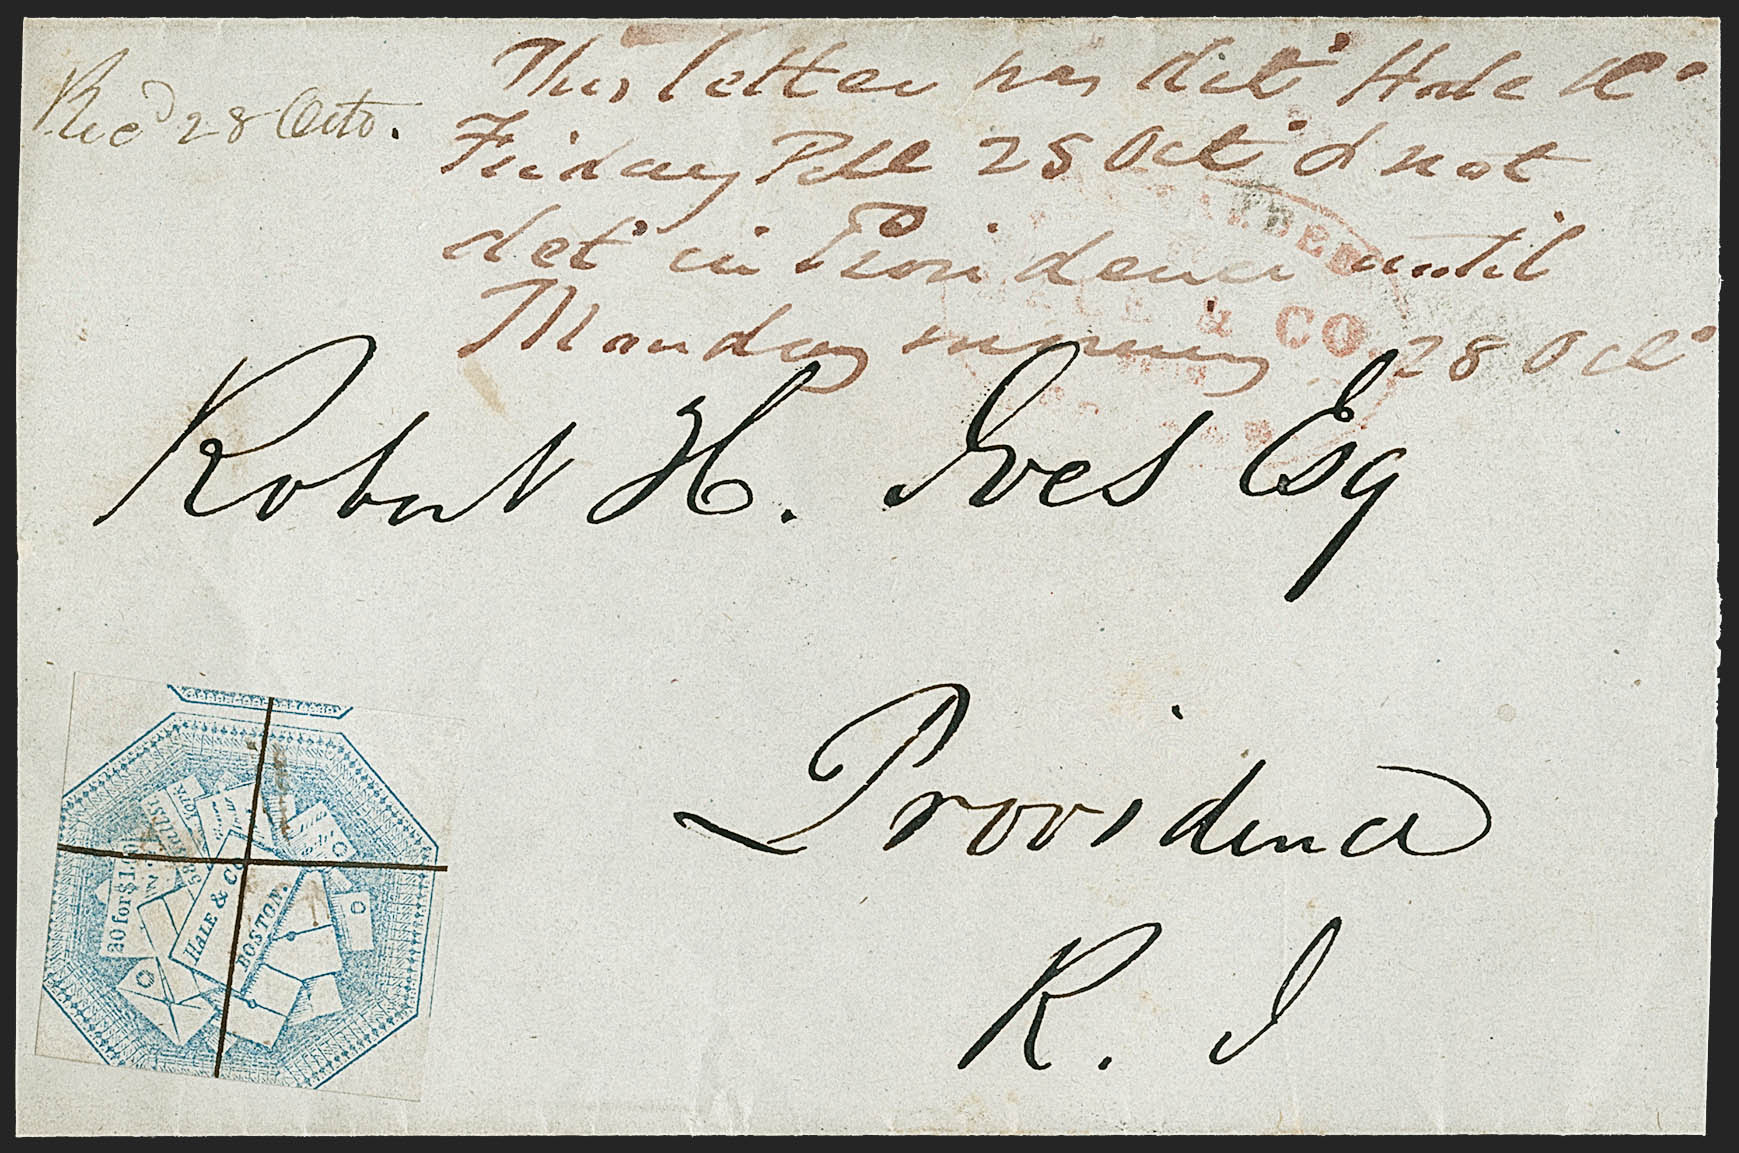 Rec'd 28 Octo.
This letter was del'd Hale &Co
Friday PM 25 Oct & not
del'd in Providence until
Monday morning 28 Oct
& CO.
Robert H. Ives Esq
Providence
R. I
20 for $1.00
HALE & Co
BOSTON.